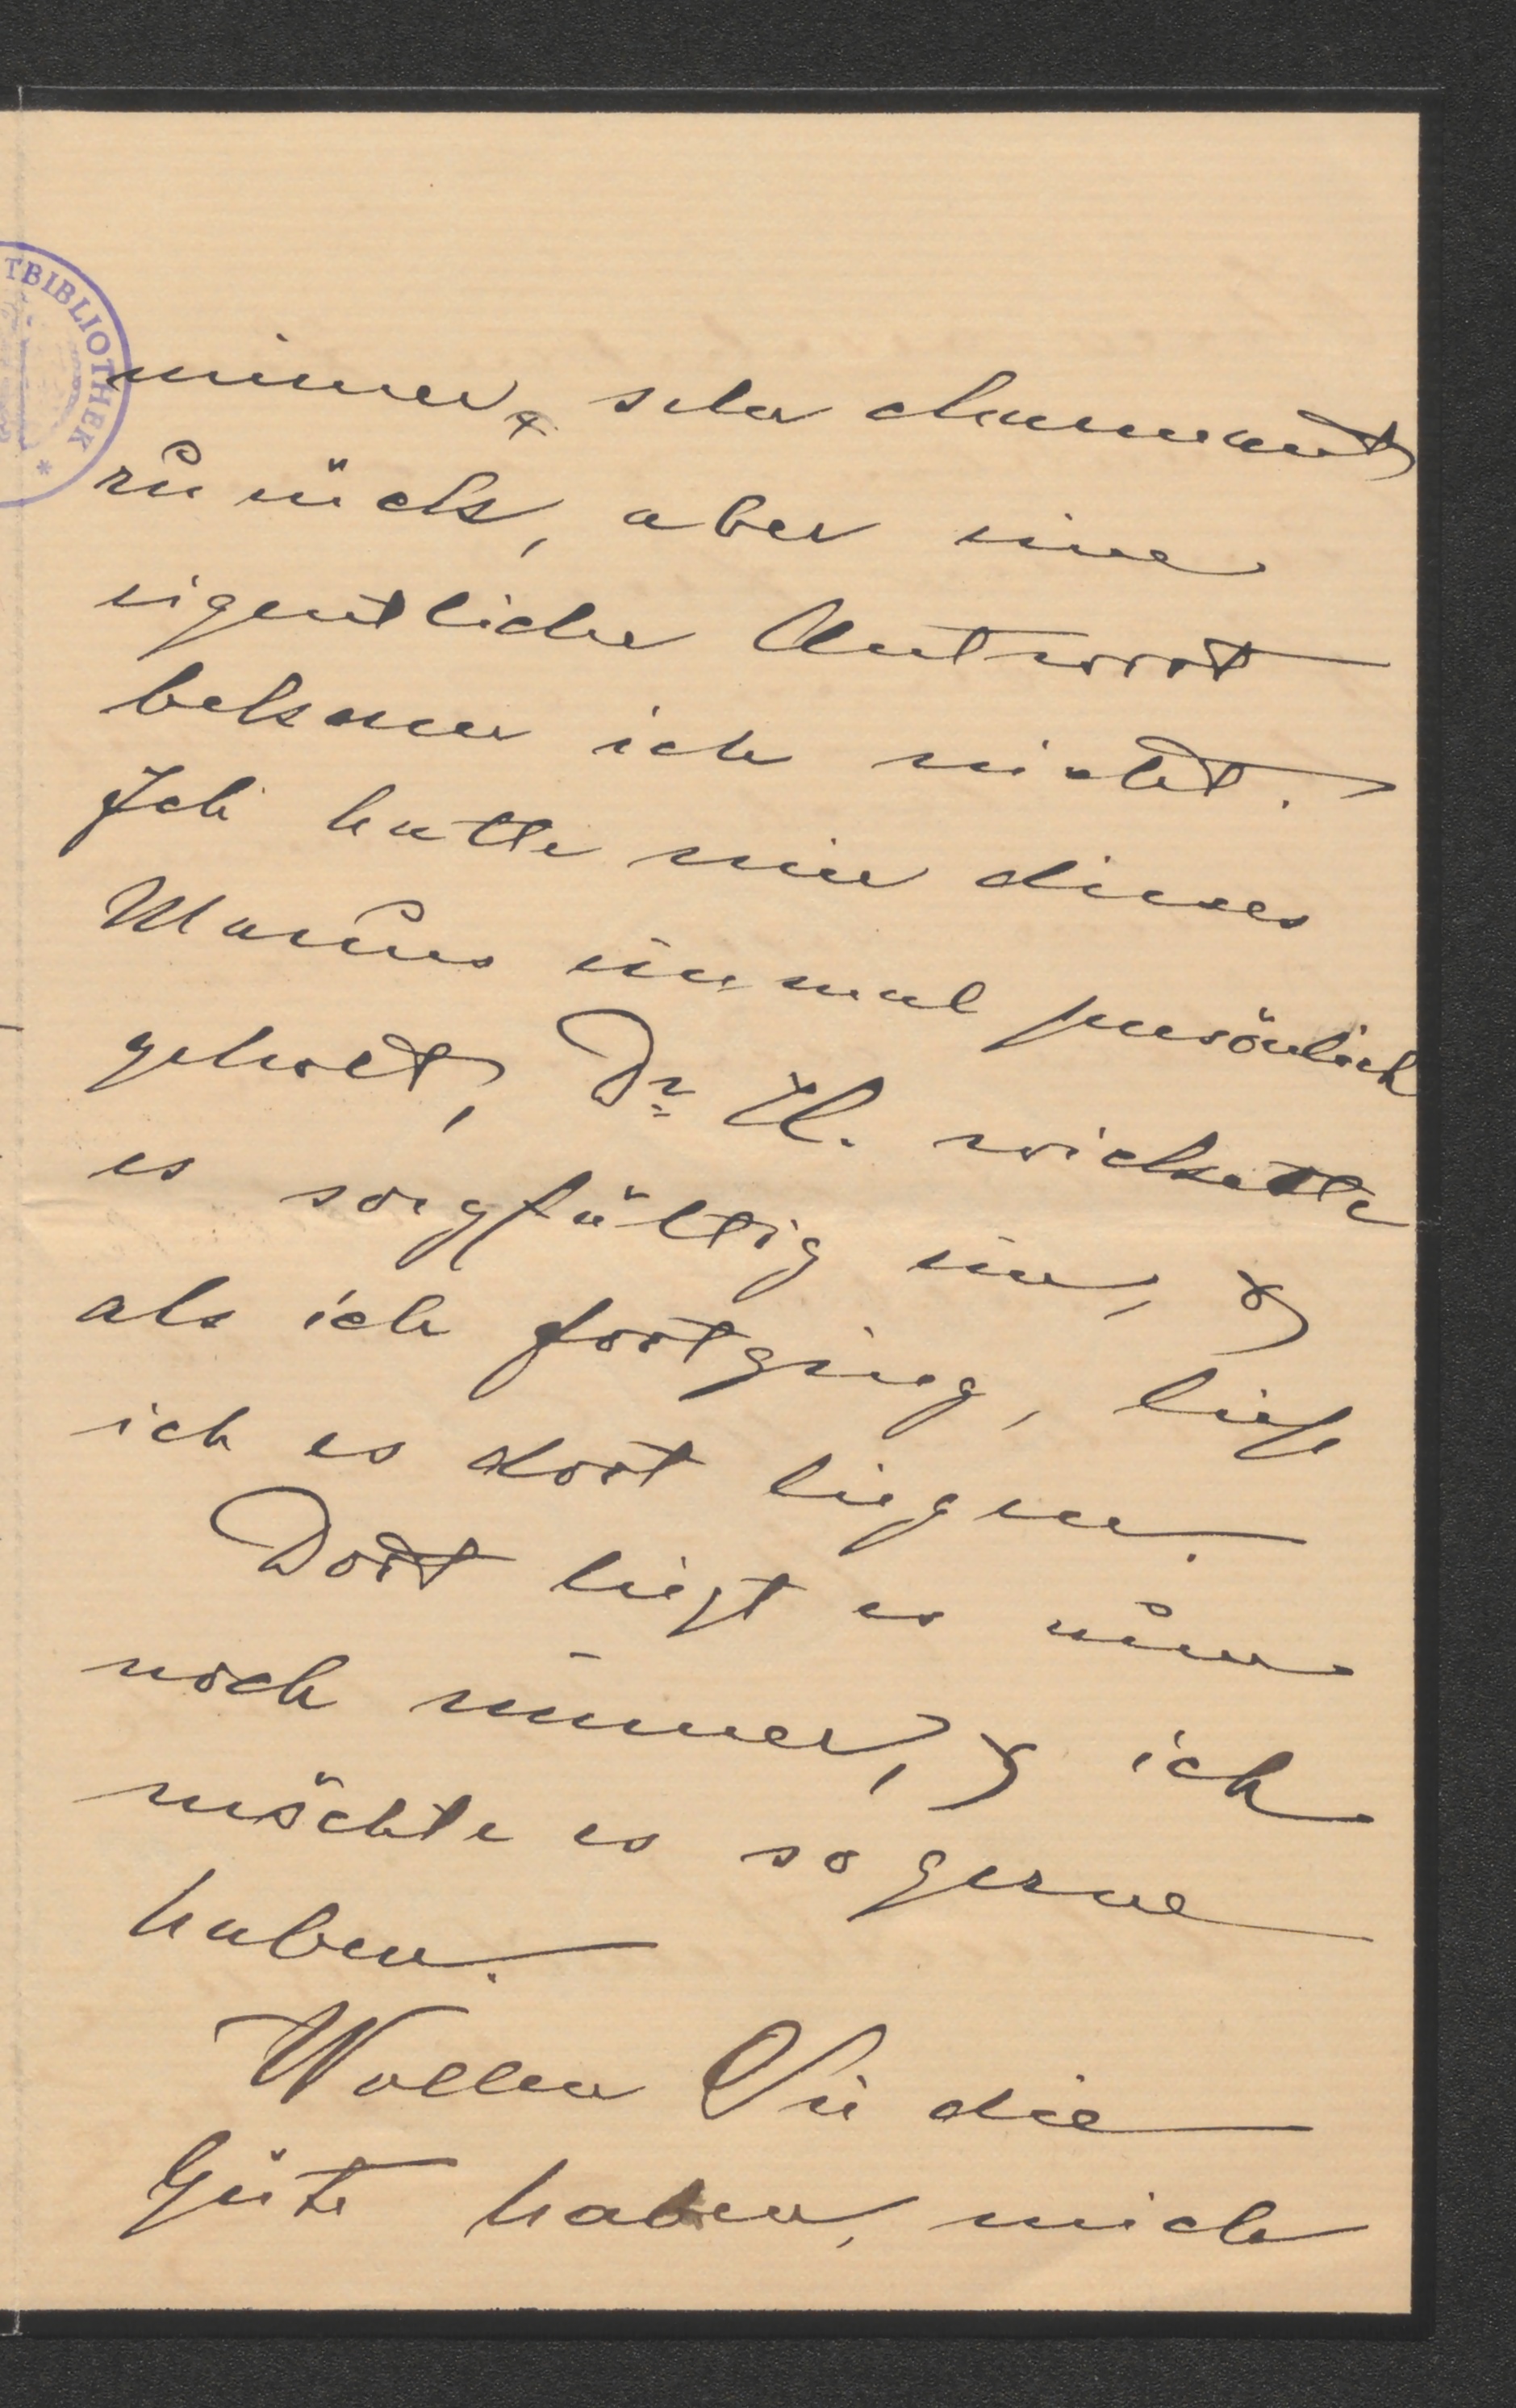 TBIBLIOTHEK *
immer sehr charmant
zurück, aber eine
eigentliche Antwort
bekam ich nicht.
Ich hatte mir dieses
Manus einmal persönlich
geholt, Dr H. wickelte
es sorgfältig ein, &
als ich fortging, ließ
ich es dort liegen.
Dort liegt es nun
noch immer, & ich
möchte es so gerne
haben.
Wollen Sie die
Güte haben, mich